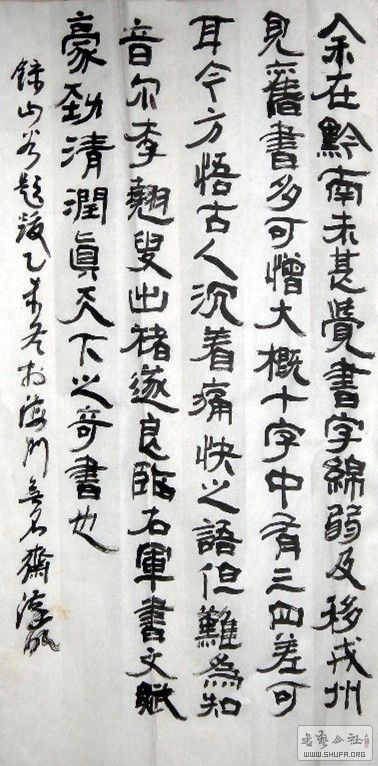 余在黔南未甚覺書字綿弱及移戎州
見舊書多可憎大概十字中有三四差可
耳今方悟古人沉着痛快之語但難為知
音尔李翹叟出褚遂良臨右軍書文賦
豪勁清潤真天下之奇書也
錄山谷題跋乙未冬於海門無名齋
WWW.SHUFA.ORG